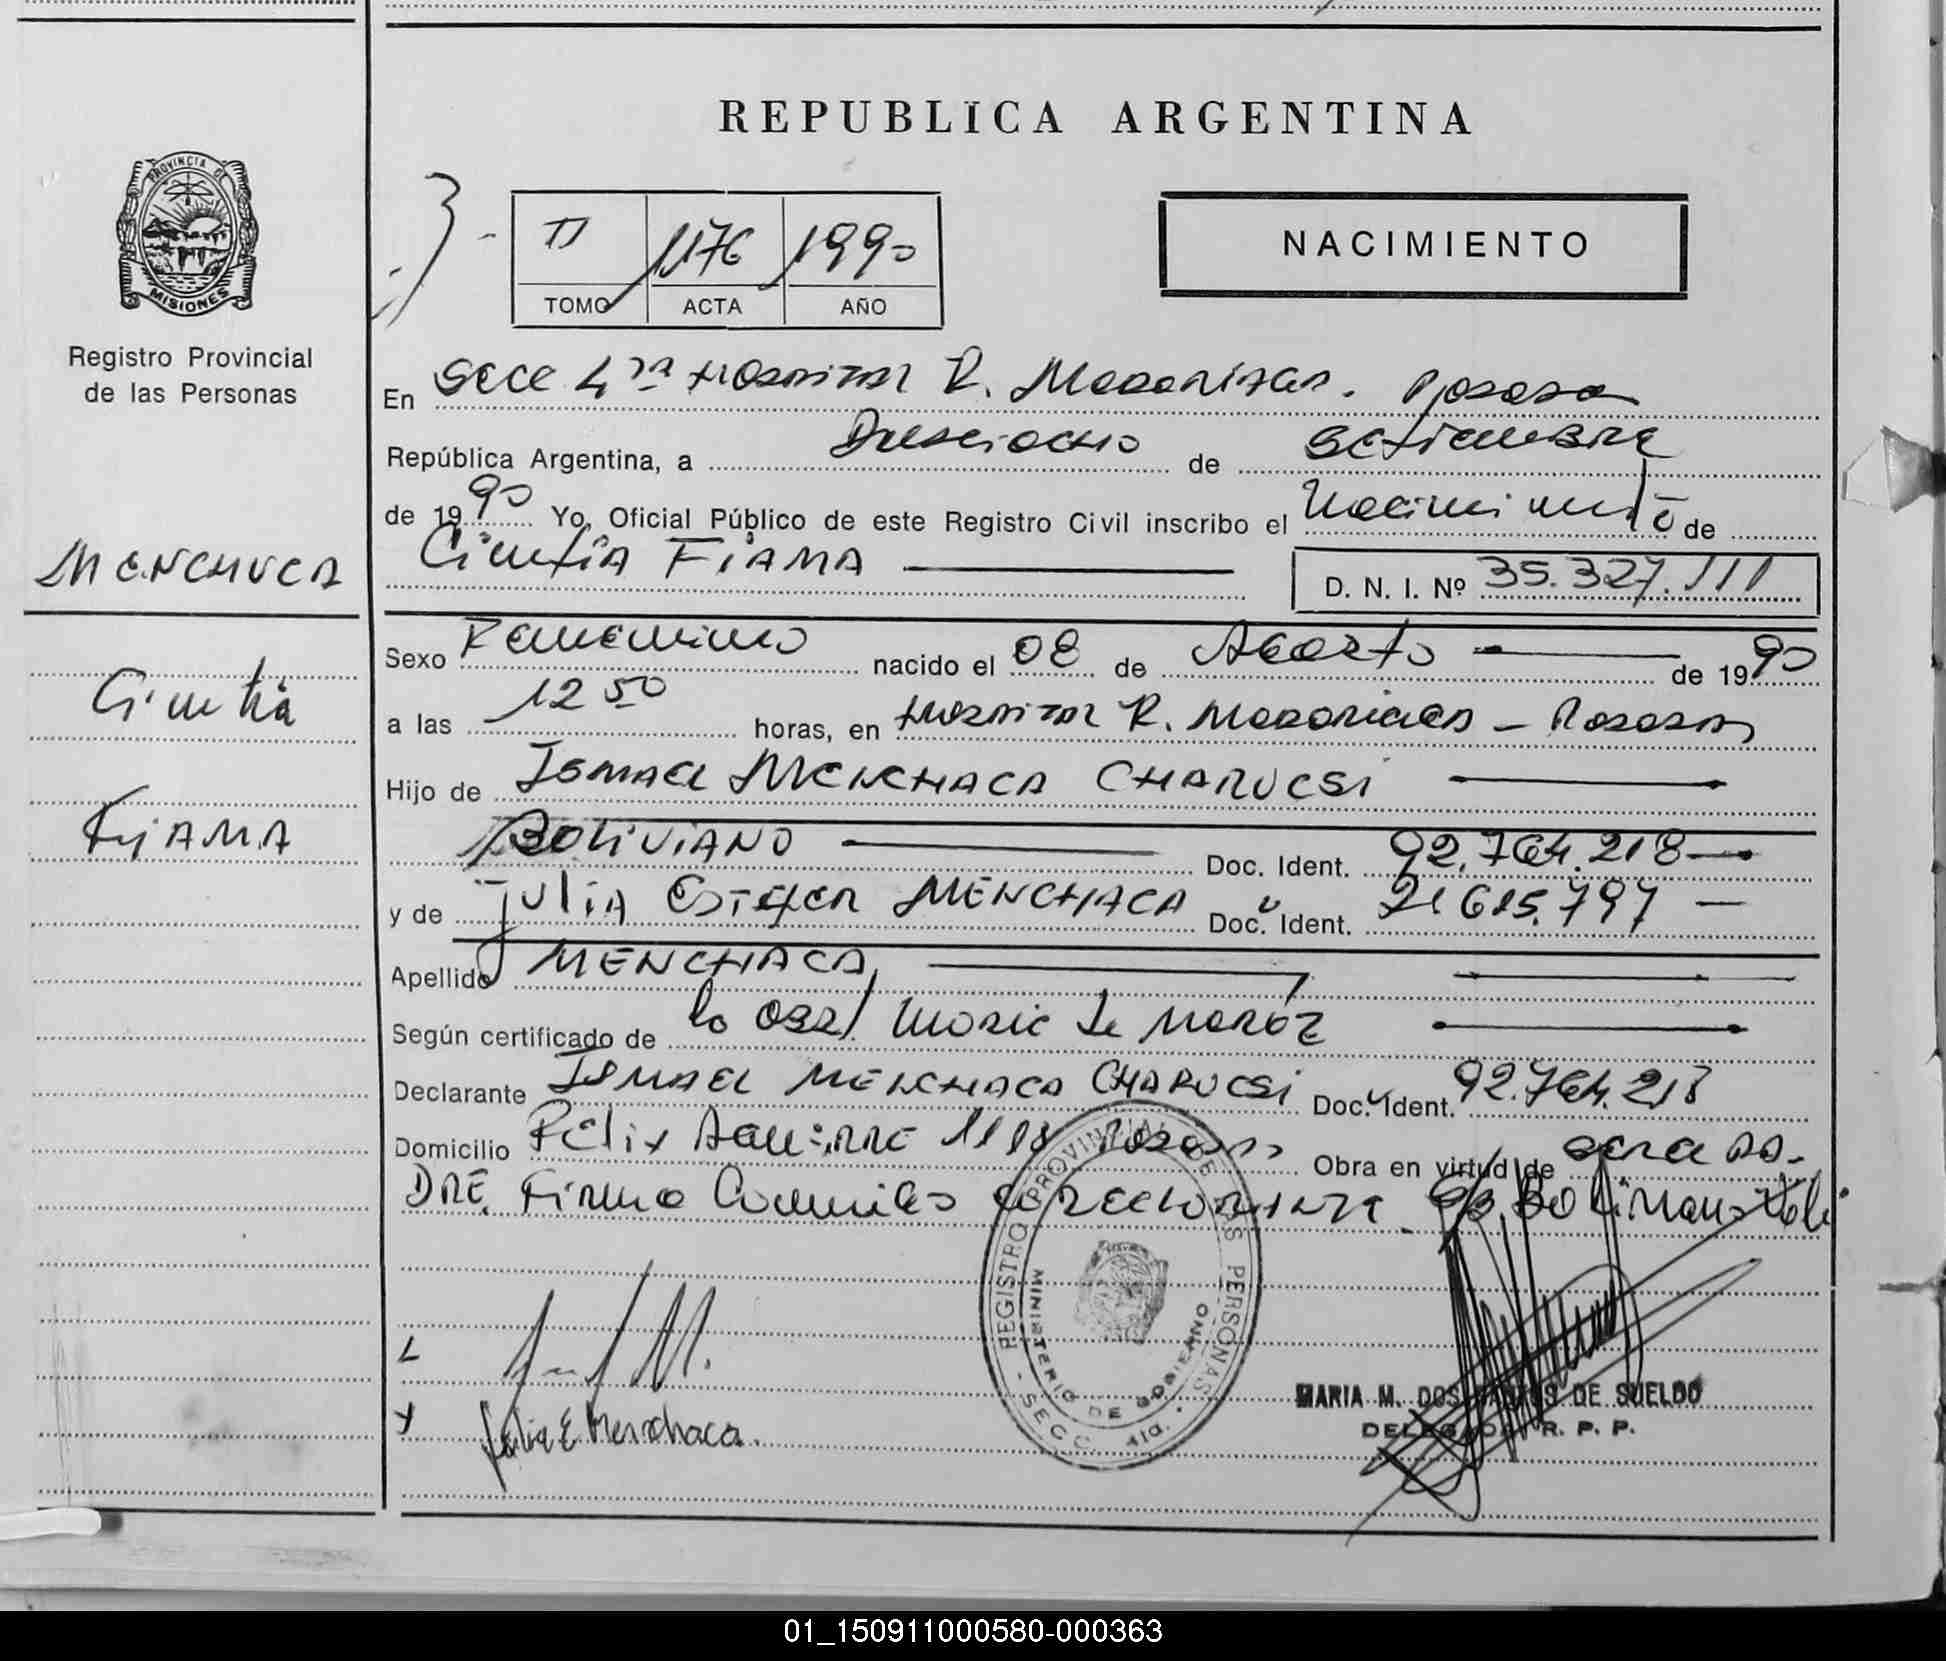 REPUBLICA ARGENTINA
PROVINCIA DE
MISIONES
Registro Provincial
de las Personas
3 -
II 1176 1990
TOMO ACTA AÑO
NACIMIENTO
En Secc 4ta Hospital R. Madariaga. Posadas
República Argentina, a Dieciocho de Setiembre
de 1990 Yo, Oficial Público de este Registro Civil inscribo el Nacimiento de
MENCHACA
Cintia FIAMA
D. N. I. Nº 35.327.111
Sexo Femenino nacido el 08 de Agosto de 1990
Cintia
a las 12 50 horas, en Hospital R. Madariaga - Posadas
Hijo de ISMAEL MENCHACA CHARUCSI
FIAMA
BOLIVIANO Doc. Ident. 92.764.218
y de Julia Ester MENCHACA Doc. Ident. 21.615.797
Apellido MENCHACA
Según certificado de la Obst. Maria de
Declarante ISMAEL MENCHACA CHARUCSI Doc. Ident. 92.764.218
Domicilio Felix Aguirre Posadas Obra en virtud de ser el PA-
DRE. Firma
L
y Julia E Menchaca.
REGISTRO PROVINCIAL DE LAS PERSONAS - SECC. 4ta.
MINISTERIO DE GOBIERNO
MARIA M. DOS SANTOS DE SUELDO
DELEGADA R. P. P.
01_150911000580-000363